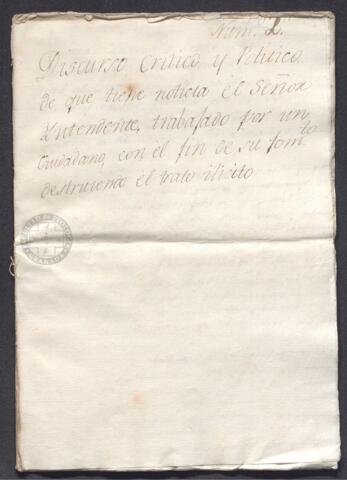 Num.º 2.
Discurso Critico y Politico
de que tiene noticia el Señor
Yntendente, trabajado por un
Ciudadano, con el fin de su fom.to
destruiendo el trato ilicito